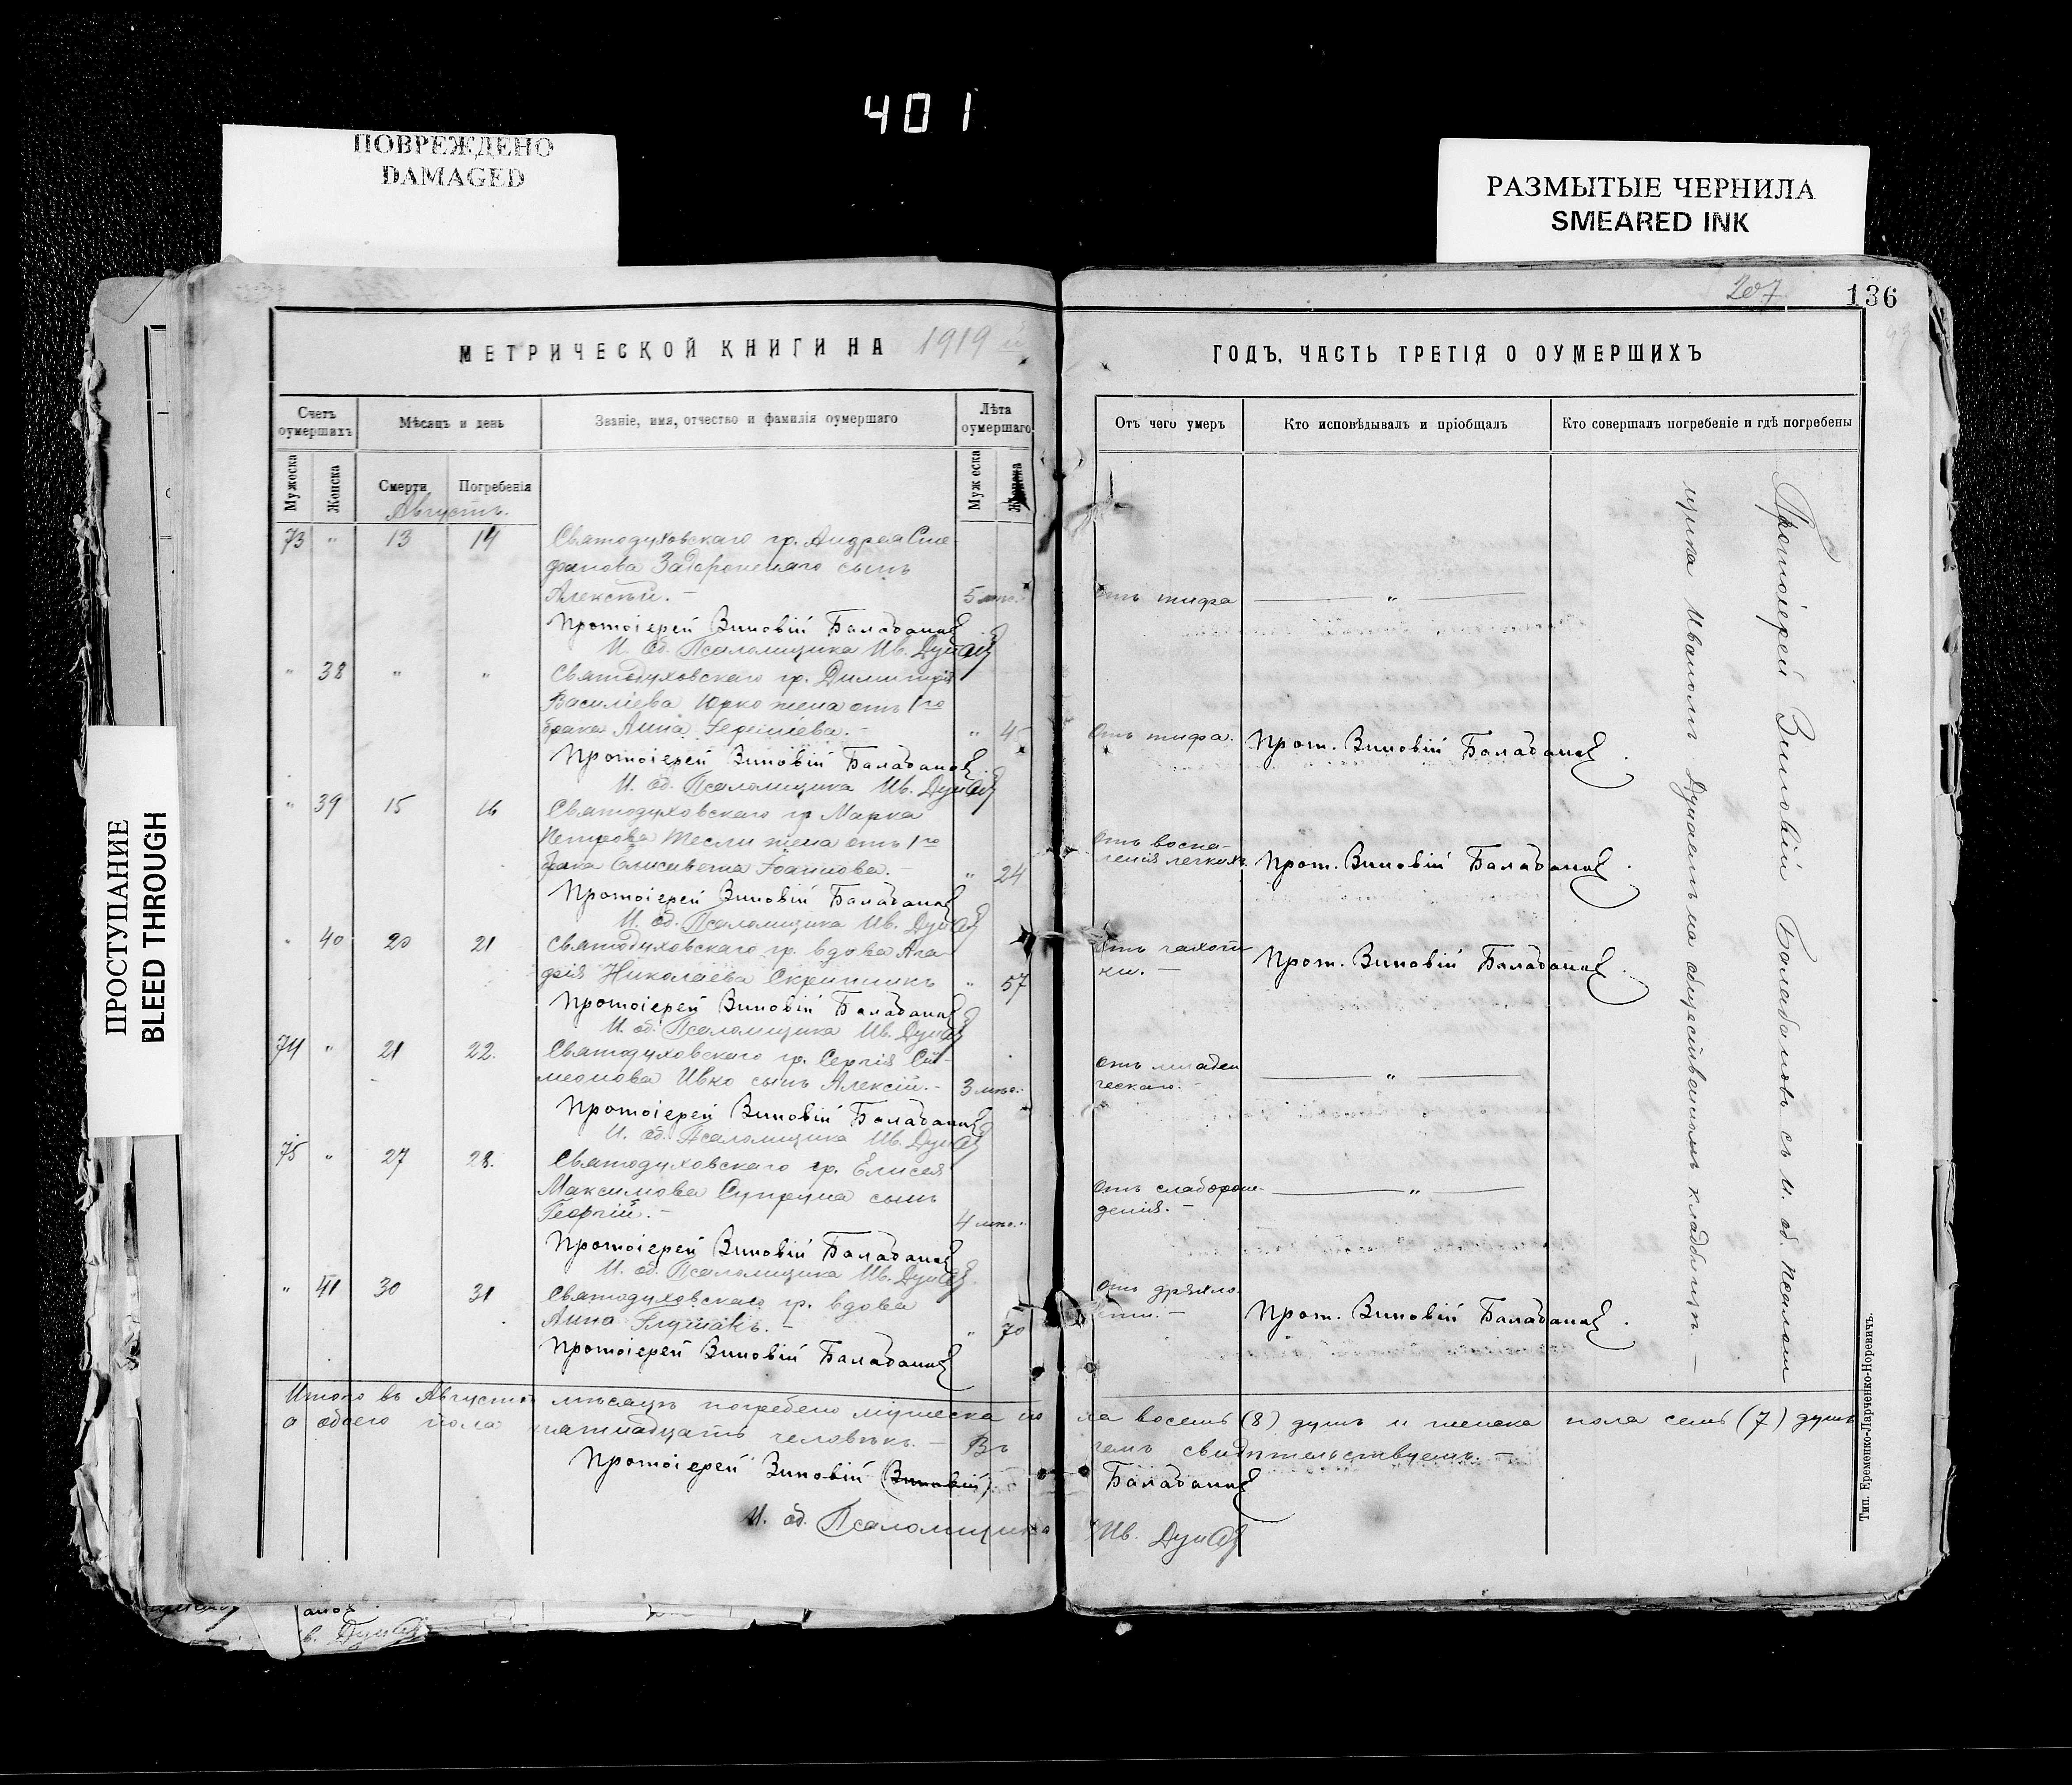 401
ПОВРЕЖДЕНО
DAMAGED
РАЗМЫТЫЕ ЧЕРНИЛА
SMEARED INK
ПРОСТУПАНИЕ
BLEED THROUGH
207
136
МЕТРИЧЕСКОЙ КНИГИ НА 1919 й
Счетъ оумершихъ
Мѣсяцъ и день
Званіе, имя, отчество и фамилія оумершаго
Лѣта оумершаго
Мужеска
Женска
Смерти
Погребенія
Муж еска
Женска
Августъ.
73 " 13 14 Святодуховскаго гр. Андрея Сте-
фанова Задорожнаго сынъ
Алексѣй. – 5 мѣс.
Протоіерей Зиновій Балабанов
И. об. Псаломщика Ив. Дунай
" 38 " " Святодуховскаго гр. Димитрія
Василіева Юрко жена отъ 1го
брака Анна – " 45
Протоіерей Зиновій Балабанов
И. об. Псаломщика Ив. Дунай
" 39 15 16 Святодуховскаго гр. Марка
Петрова Тесли жена отъ 1го
брака Елисавета Іоаннова. – " 24
Протоіерей Зиновій Балабанов
И. об. Псаломщика Ив. Дунай
" 40 20 21 Святодуховскаго гр. вдова Ага-
фія Николаева Скрипникъ " 57
Протоіерей Зиновій Балабанов
И. об. Псаломщика Ив. Дунай
74 " 21 22. Святодуховскаго гр. Сергія Си-
меонова Ивко сынъ Алексій. – 3 мѣс.
Протоіерей Зиновій Балабанов
И. об. Псаломщика Ив. Дунай
75 " 27 28. Святодуховскаго гр. Елисея
Максимова Супруна сынъ
Георгій. – 4 мѣс.
Протоіерей Зиновій Балабанов
И. об. Псаломщика Ив. Дунай
" 41 30 31 Святодуховскаго гр. вдова
Анна Глушакъ. – " 70
Протоіерей Зиновій Балабанов
Итого въ Августѣ мѣсяцѣ погребено мужеска по
а обоего пола пятнадцать человѣкъ. – Въ
Протоіерей Зиновій (Зиновій)
И. об. Псаломщика
ГОДЪ, ЧАСТЬ ТРЕТІЯ О ОУМЕРШИХЪ
Отъ чего умеръ
Кто исповѣдывалъ и пріобщалъ
Кто совершалъ погребеніе и гдѣ погребены
отъ тифа "
отъ тифа. Прот. Зиновій Балабанов
отъ воспа-
ленія легкихъ Прот. Зиновій Балабанов
отъ чахот
ки. – Прот. Зиновій Балабанов
отъ младен
ческаго. – "
отъ слаборож-
денія. – "
отъ дряхло
сти. – Прот. Зиновій Балабанов
Протоіерей Зиновій Балабановъ съ и. об. псалом
щика Иваномъ Дунаемъ на общественномъ кладбищѣ –
ла восемь (8) душъ и женска пола семь (7) душъ
чемъ свидѣтельствуемъ. –
Балабанов
Ив. Дунай
Тип. Еременко-Ларченко-Норевичъ.
в. Дунай